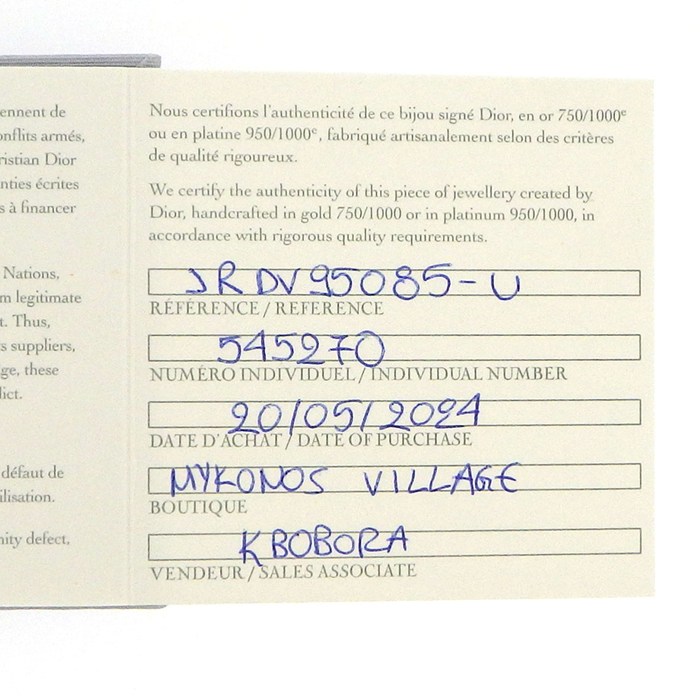 ennent de
onflits armés,
ristian Dior
nties écrites
s à financer
Nations,
m legitimate
t. Thus,
s suppliers,
ge, these
lict.
défaut de
ilisation.
nity defect,
Nous certifions l'authenticité de ce bijou signé Dior, en or 750/1000ᵉ
ou en platine 950/1000ᵉ, fabriqué artisanalement selon des critères
de qualité rigoureux.
We certify the authenticity of this piece of jewellery created by
Dior, handcrafted in gold 750/1000 or in platinum 950/1000, in
accordance with rigorous quality requirements.
JRDV95085-U
RÉFÉRENCE / REFERENCE
545270
NUMÉRO INDIVIDUEL / INDIVIDUAL NUMBER
20/05/2024
DATE D'ACHAT / DATE OF PURCHASE
MYKONOS VILLAGE
BOUTIQUE
K BOBORA
VENDEUR / SALES ASSOCIATE